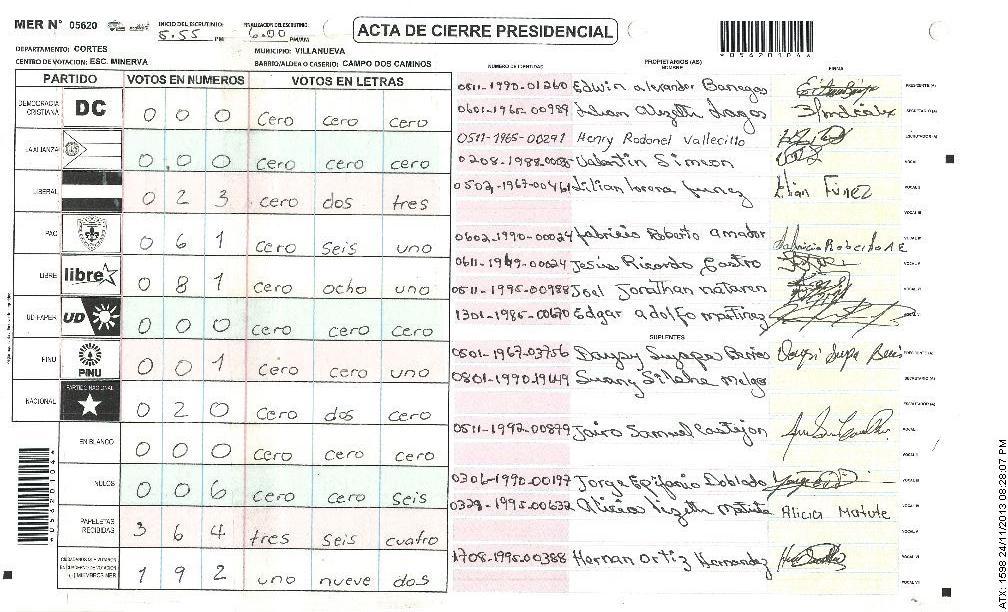 MER N° 05620 INICIO DEL ESCRUTINIO: 5:55 PM FINALIZACIÓN DEL ESCRUTINIO: 6:00 PM/AM
ACTA DE CIERRE PRESIDENCIAL
DEPARTAMENTO: CORTES MUNICIPIO: VILLANUEVA
CENTRO DE VOTACION: ESC. MINERVA BARRIO/ALDEA O CASERIO: CAMPO DOS CAMINOS
PARTIDO VOTOS EN NUMEROS VOTOS EN LETRAS
DEMOCRACIA CRISTIANA DC 0 0 0 cero cero cero
LA ALIANZA 0 0 0 cero cero cero
LIBERAL 0 2 3 cero dos tres
PAC 0 6 1 cero seis uno
LIBRE libre 0 8 1 cero ocho uno
UD FAPER UD 0 0 0 cero cero cero
PINU PINU 0 0 1 cero cero uno
NACIONAL PARTIDO NACIONAL 0 2 0 cero dos cero
EN BLANCO 0 0 0 cero cero cero
NULOS 0 0 6 cero cero seis
PAPELETAS RECIBIDAS 3 6 4 tres seis cuatro
1 9 2 uno nueve dos
NUMERO DE IDENTIDAD PROPIETARIOS (AS) NOMBRE FIRMA
0511-1990-01260 Edwin alexander Banegas PRESIDENTE (A)
0601-1965-00989 SECRETARIO (A)
0511-1965-00291 Henry Rodonel Vallecillo ESCRUTADOR (A)
Valentin Simeon VOCAL I
Lilian lorena funez Lilian Funez VOCAL II
VOCAL III
0602-1990-00024 fabricio Roberto amador
Jesus Ricardo Castro
0511-1995-00988 Joel Jonathan mataren
1301-1985-00670 Edgar adolfo martinez
SUPLENTES
0501-1967-03756 Daysy Suyapa
SECRETARIO (A)
ESCRUTADOR (A)
0511-1992-00879 Jairo Samuel Castejon
0306-1990-00197 Jorge Epifanio Doblado
Alicia lizeth Matute Alicia Matute
1708-1995-00388 Hernan Ortiz Hernandez
056201044
ATX: 1598 24/11/2013 08:28:07 PM